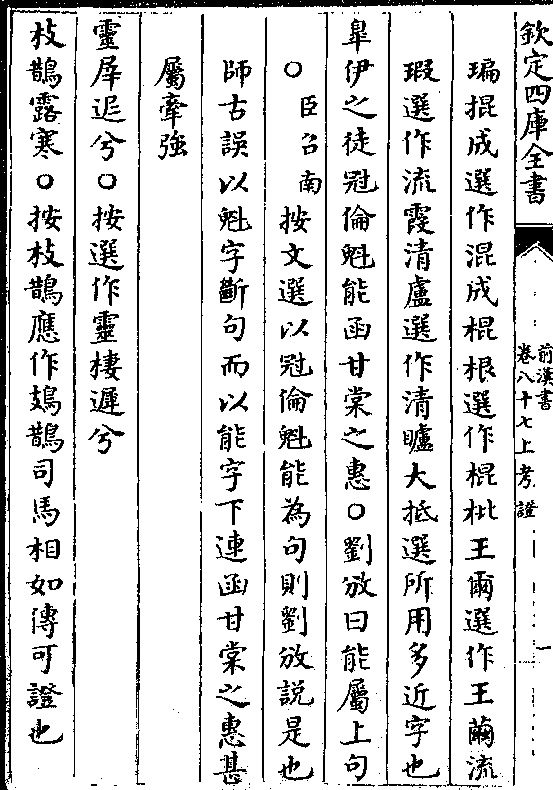 欽定四庫全書
前漢書
卷八十七上考證
㻞掍成選作混成棍根選作棍枇王爾選作王薾流
瑕選作流霞清盧選作清矑大抵選所用多近字也
臯伊之徒冠倫魁能函甘棠之惠○劉攽曰能屬上句
○臣召南按文選以冠倫魁能為句則劉攽說是也
師古誤以魁字斷句而以能字下連函甘棠之惠甚
屬牽強
靈屖迉兮○按選作靈棲遲兮
枝鵲露寒○按枝鵲應作鳷鵲司馬相如傳可證也